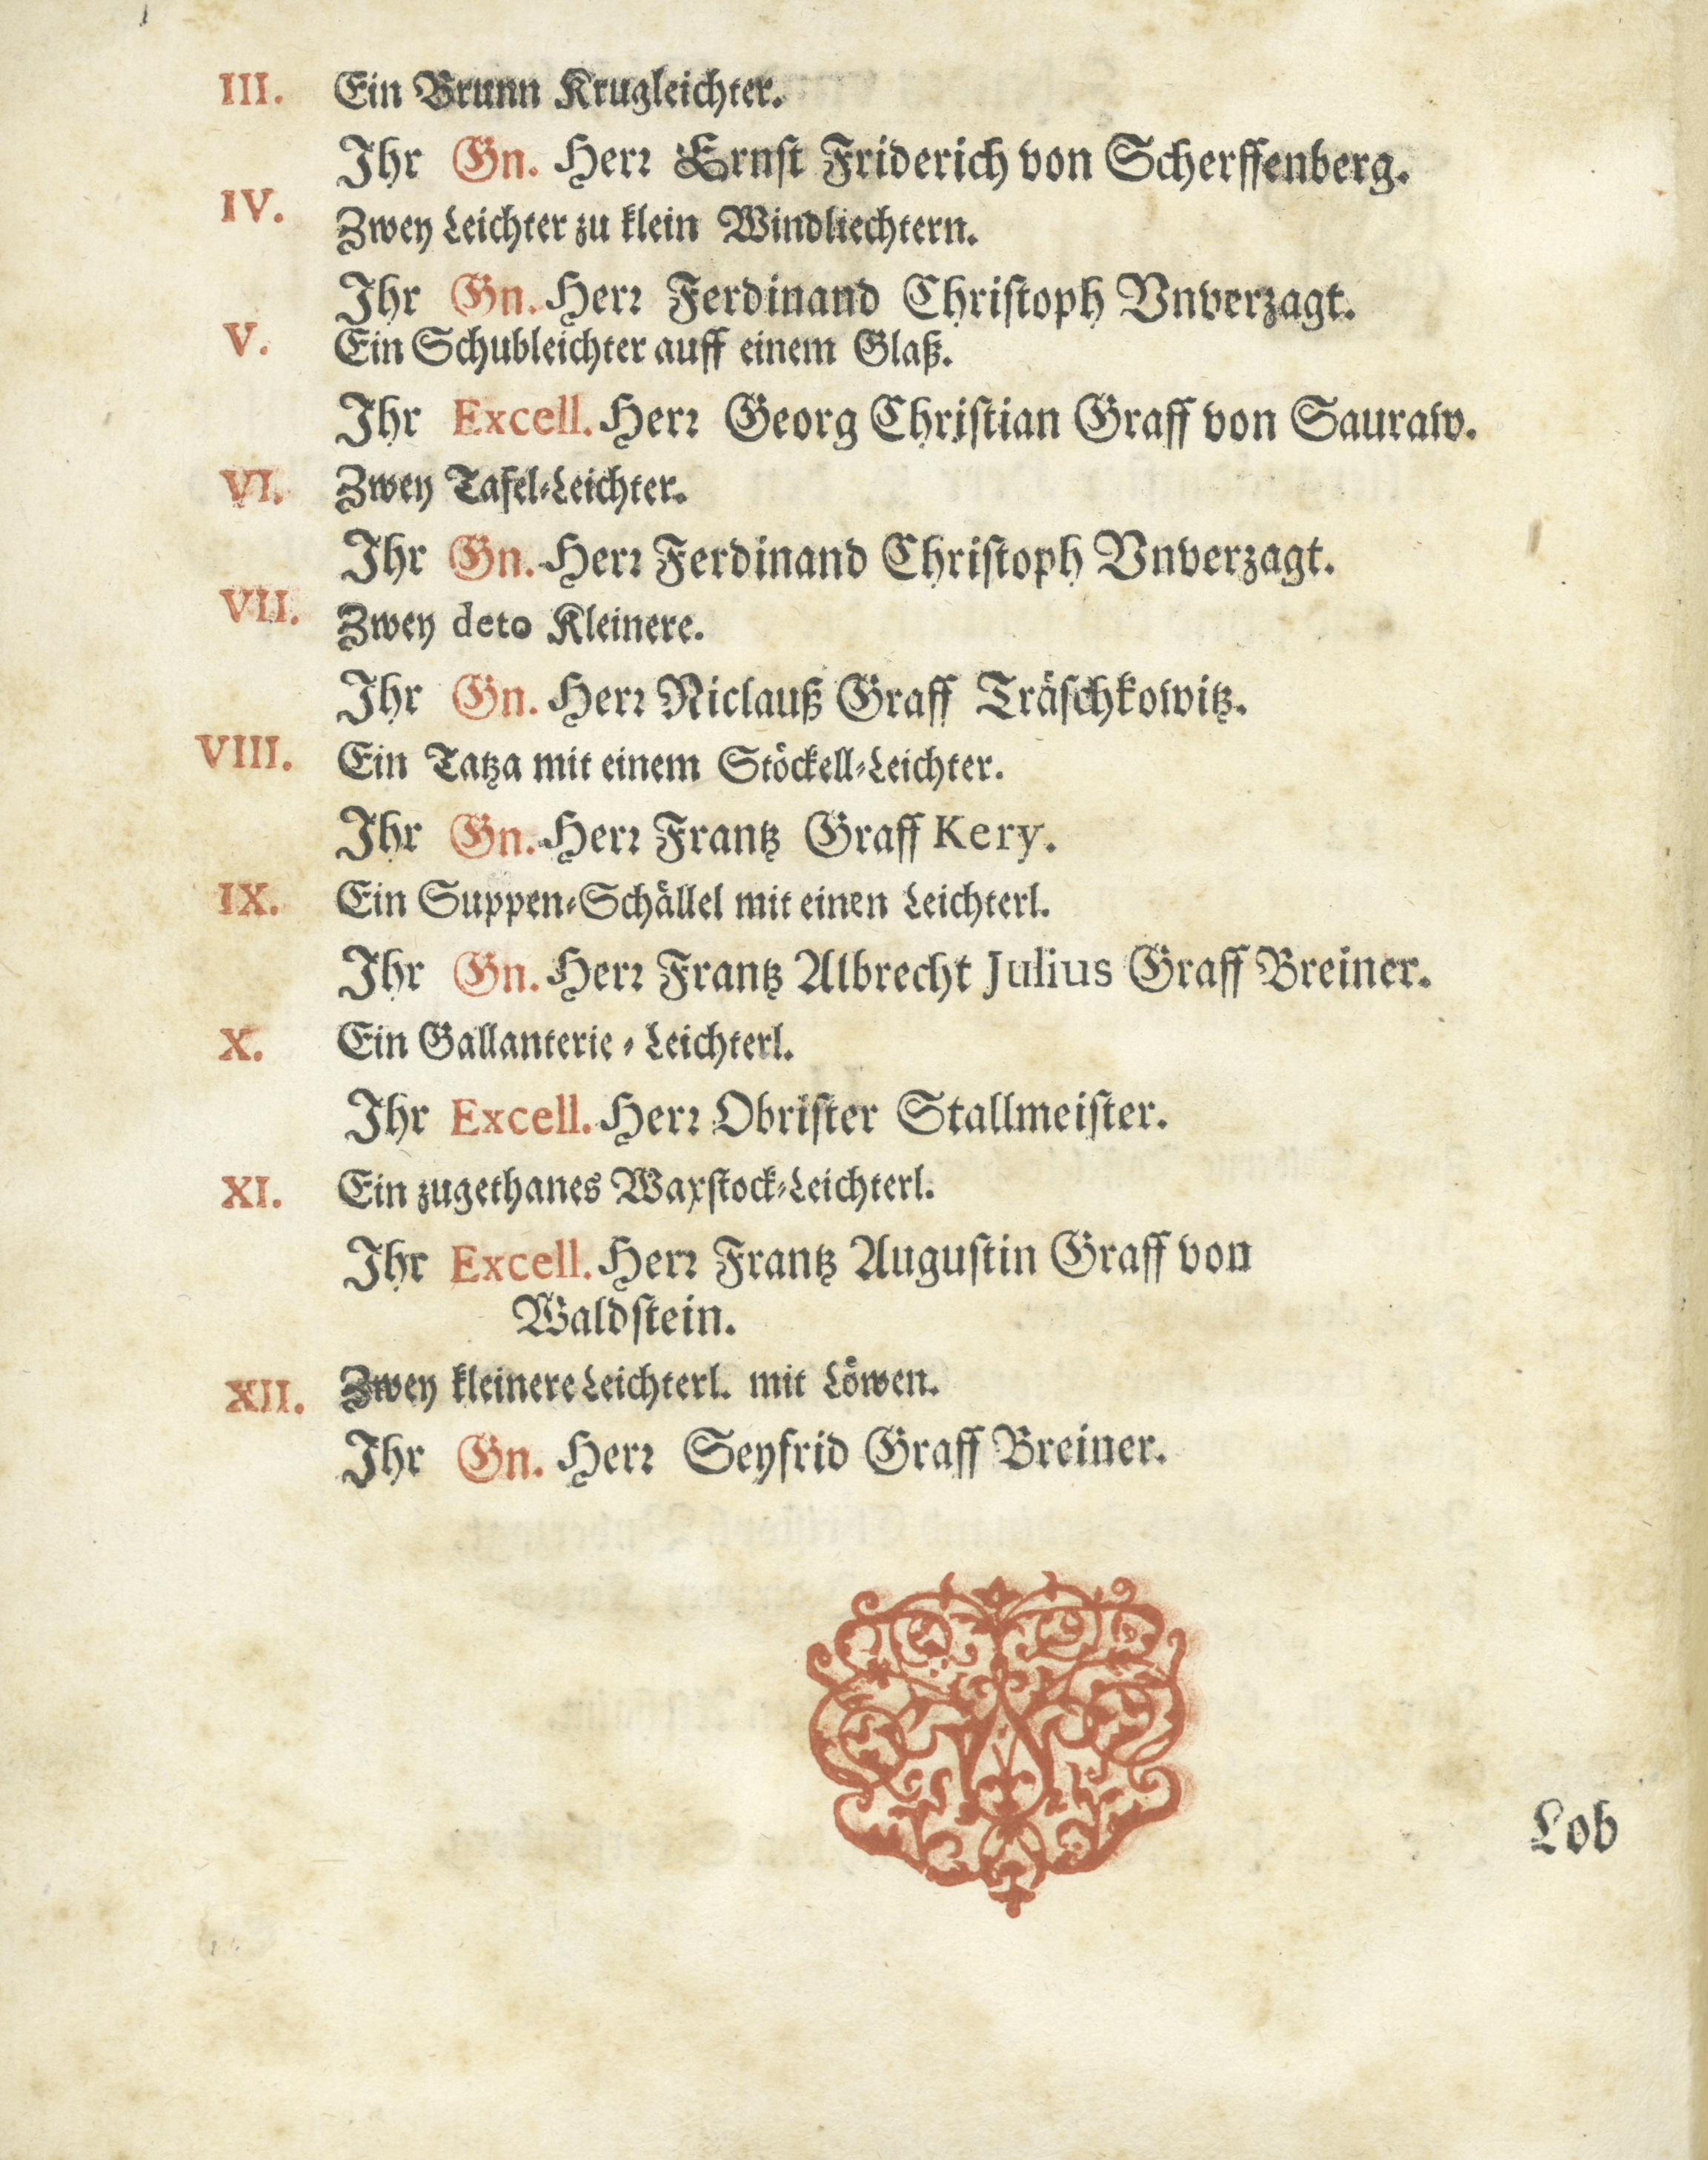 III. Ein Brunn Krugleichter.
Ihr Gn. Herꝛ Ernſt Friderich von Scherffenberg.
IV. Zwey Leichter zu klein Windliechtern.
Ihr Gn. Herꝛ Ferdinand Chriſtoph Vnverzagt.
V. Ein Schubleichter auff einem Glaß.
Ihr Excell. Herꝛ Georg Chriſtian Graff von Sauraw.
VI. Zwey Tafel-Leichter.
Ihr Gn. Herꝛ Ferdinand Chriſtoph Vnverzagt.
VII. Zwey deto Kleinere.
Ihr Gn. Herꝛ Niclauß Graff Träſchkowitz.
VIII. Ein Tatza mit einem Stöckell-Leichter.
Ihr Gn. Herꝛ Frantz Graff Kery.
IX. Ein Suppen-Schällel mit einen Leichterl.
Ihr Gn. Herꝛ Frantz Albrecht Julius Graff Breiner.
X. Ein Gallanterie - Leichterl.
Ihr Excell. Herꝛ Obriſter Stallmeiſter.
XI. Ein zugethanes Waxſtock-Leichterl.
Ihr Excell. Herꝛ Frantz Auguſtin Graff von
Waldſtein.
XII. Zwey kleinere Leichterl. mit Löwen.
Ihr Gn. Herꝛ Seyfrid Graff Breiner.
Lob